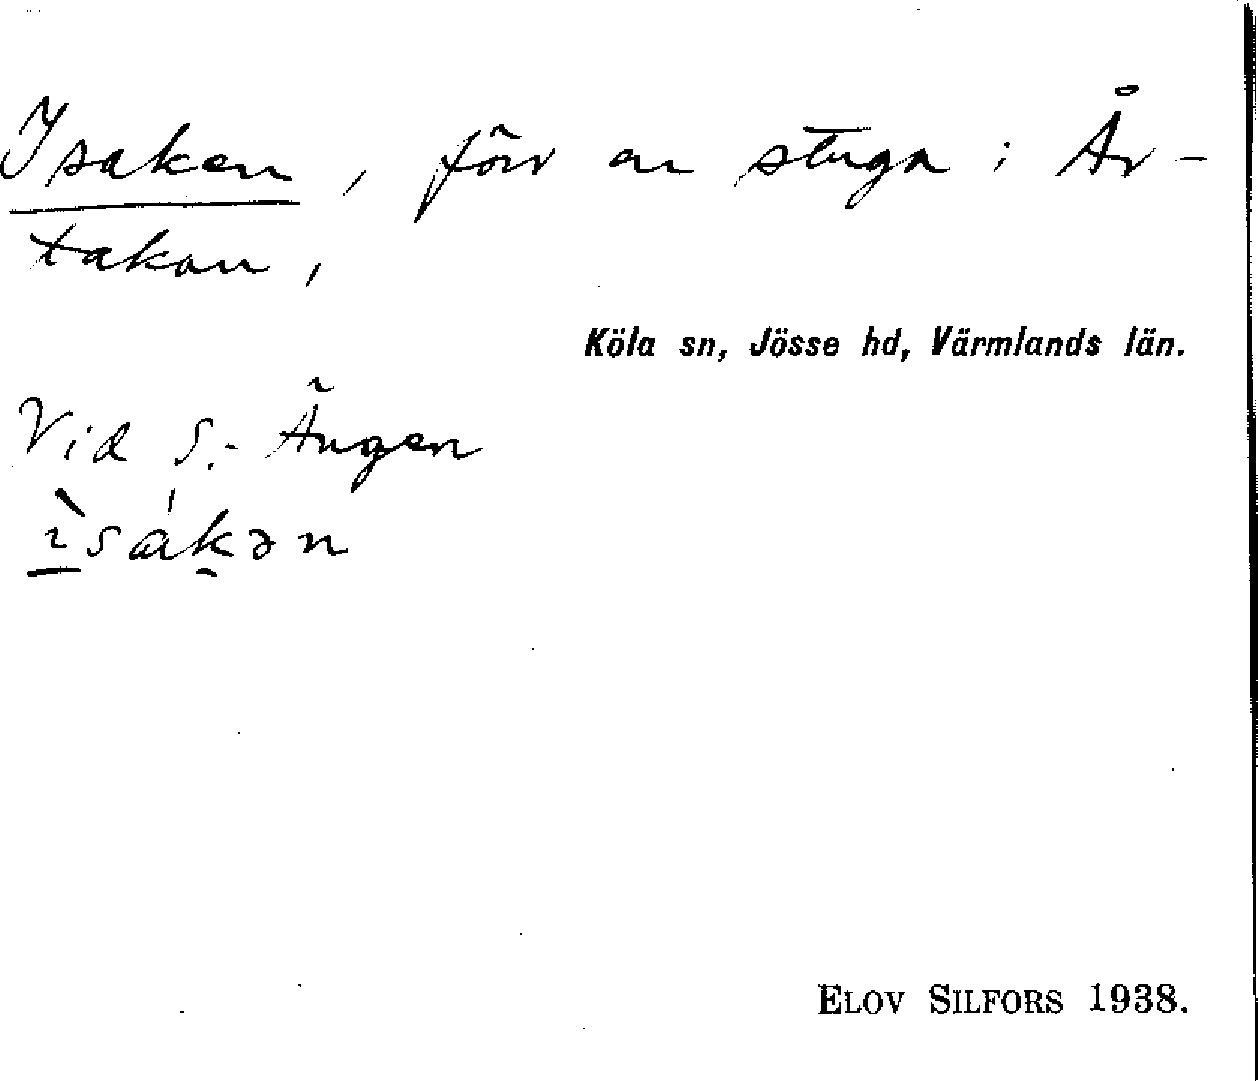 Isaken, förr en stuga i År-
takan,
Köla sn, Jösse hd, Värmlands län.
Vid S.- Ängen
ìsákən
ELOV SILFORS 1938.